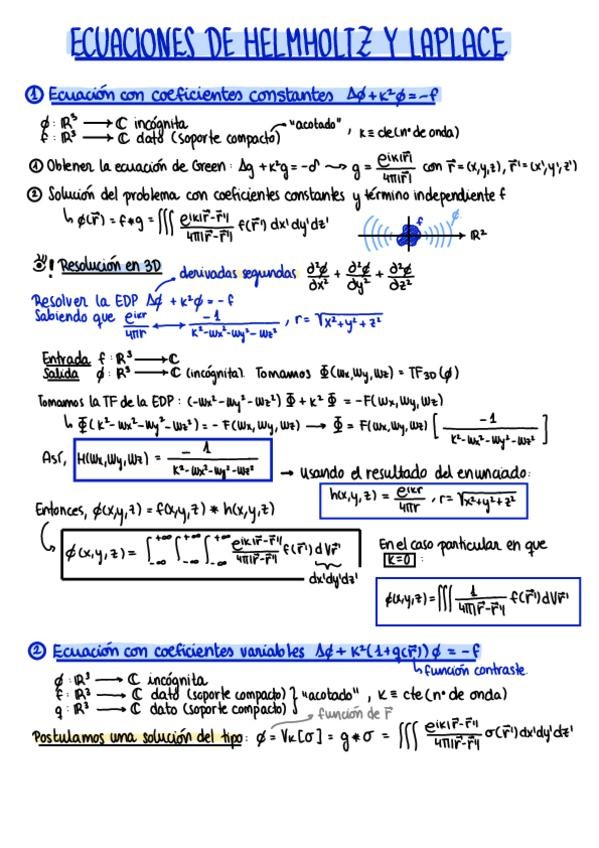 ECUACIONES DE HELMHOLTZ Y LAPLACE
① Ecuación con coeficientes constantes Δϕ+k²ϕ=-f
ϕ: ℝ³ → ℂ incógnita
f: ℝ³ → ℂ dato (soporte compacto) "acotado", k ≡ cte (nº de onda)
① Obtener la ecuación de Green: Δg + k²g = -δ ⇝ g = e^{ik|r⃗|}/4π|r⃗| con r⃗=(x,y,z), r⃗'=(x',y',z')
② Solución del problema con coeficientes constantes y término independiente f
↳ ϕ(r⃗) = f*g = ∭ e^{ik|r⃗-r⃗'|}/4π|r⃗-r⃗'| f(r⃗') dx'dy'dz'
f ϕ ℝ²
! Resolución en 3D
derivadas segundas ∂²ϕ/∂x² + ∂²ϕ/∂y² + ∂²ϕ/∂z²
Resolver la EDP Δϕ + k²ϕ = -f
Sabiendo que e^{ikr}/4πr ↔ -1/(k²-wx²-wy²-wz²), r=√(x²+y²+z²)
Entrada f: ℝ³ → ℂ
Salida ϕ: ℝ³ → ℂ (incógnita). Tomamos Φ(wx,wy,wz) = TF3D(ϕ)
Tomamos la TF de la EDP: (-wx²-wy²-wz²) Φ + k² Φ = -F(wx,wy,wz)
↳ Φ(k²-wx²-wy²-wz²) = -F(wx,wy,wz) → Φ = F(wx,wy,wz) [-1/(k²-wx²-wy²-wz²)]
Así, H(wx,wy,wz) = -1/(k²-wx²-wy²-wz²) → Usando el resultado del enunciado:
h(x,y,z) = e^{ikr}/4πr, r=√(x²+y²+z²)
Entonces, ϕ(x,y,z) = f(x,y,z) * h(x,y,z)
ϕ(x,y,z) = ∫_{-∞}^{+∞} ∫_{-∞}^{+∞} ∫_{-∞}^{+∞} e^{ik|r⃗-r⃗'|}/4π|r⃗-r⃗'| f(r⃗') dVr⃗'
dx'dy'dz'
En el caso particular en que
k=0 :
ϕ(x,y,z) = ∭ 1/4π|r⃗-r⃗'| f(r⃗') dVr⃗'
② Ecuación con coeficientes variables Δϕ + k²(1+q(r⃗))ϕ = -f
↳ función contraste
ϕ: ℝ³ → ℂ incógnita
f: ℝ³ → ℂ dato (soporte compacto)
q: ℝ³ → ℂ dato (soporte compacto) } "acotado", k ≡ cte (nº de onda)
función de r⃗
Postulamos una solución del tipo: ϕ = Vk[σ] = g*σ = ∭ e^{ik|r⃗-r⃗'|}/4π|r⃗-r⃗'| σ(r⃗') dx'dy'dz'